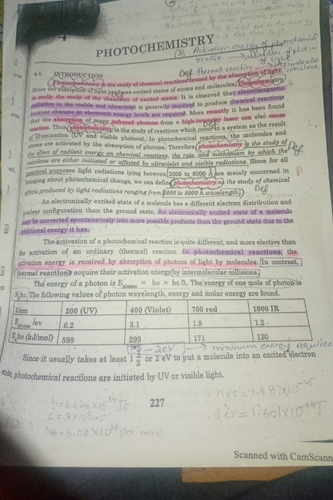 4
PHOTOCHEMISTRY
Activation energy of photochemical
Def thermal reaction
4.1. INTRODUCTION
Photochemistry is the study of chemical reactions caused by the absorption of light.
Since the absorption of light produces excited states of atoms and molecules, Photochemistry
is really the study of the chemistry of excited states. It is observed that electromagnetic
radiation in the visible and ultraviolet is generally required to produce chemical reactions
because changes in electronic energy levels are required. More recently it has been found
that the absorption of many infrared photons from a high-intensity laser can also cause
reaction. Thus, photochemistry is the study of reactions which occur in a system as the result
of illumination (UV and visible photons). In photochemical reactions, the molecules and
atoms are activated by the absorption of photons. Therefore, photochemistry is the study of Def
the effect of radiant energy on chemical reactions, the rate, and mechanism by which the
reactions are either initiated or affected by ultraviolet and visible radiations. Since for all
practical purposes light radiations lying between 2000 to 8000 Å are mainly concerned in
bringing about photochemical change, we can define photochemistry as the study of chemical
reactions produced by light radiations ranging from 2000 to 8000 Å wavelength. Def
An electronically excited state of a molecule has a different electron distribution and
nuclear configuration than the ground state. An electronically excited state of a molecule
may be converted spontaneously into more possible products than the ground state due to the
additional energy it has.
The activation of a photochemical reaction is quite different, and more elective than
the activation of an ordinary (thermal) reaction. In photochemical reactions, the
activation energy is received by absorption of photons of light by molecules. In contrast,
thermal reactions acquire their activation energy by intermolecular collisions.
The energy of a photon is E photon = hυ = hc/λ. The energy of one mole of photon is
N₀hυ. The following values of photon wavelength, energy and molar energy are found.
λ/nm 200 (UV) 400 (Violet) 700 red 1000 IR
E photon /ev 6.2 3.1 1.8 1.2
N₀hυ (kJ/mol) 598 299 171 120
2eV → minimum energy required
Since it usually takes at least 1 1/2 or 2 eV to put a molecule into an excited electron
state, photochemical reactions are initiated by UV or visible light.
227
Scanned with CamScann